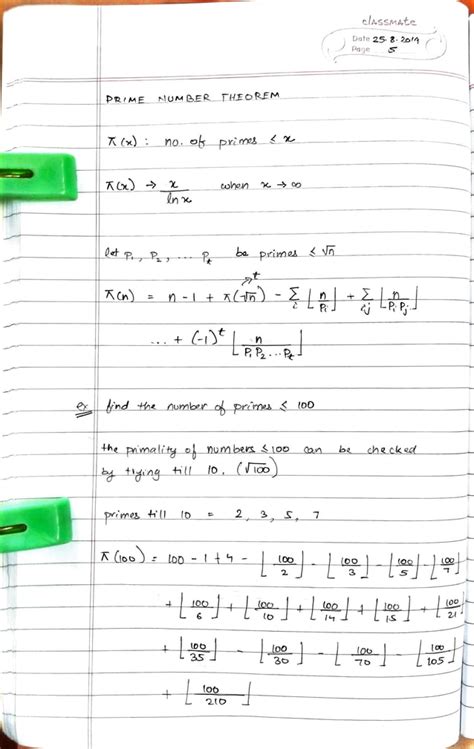 classmate
Date 25.8.2019
Page 5
PRIME NUMBER THEOREM
π(x) : no. of primes ≤ x
π(x) → x/ln x when x → ∞
let P₁, P₂, ... Pₜ be primes ≤ √n
π(n) = n - 1 + π(√n)^{↗t} - Σ_i ⌊n/Pᵢ⌋ + Σ_{i,j} ⌊n/PᵢPⱼ⌋
... + (-1)ᵗ ⌊n/P₁P₂...Pₜ⌋
ex find the number of primes ≤ 100
the primality of numbers ≤ 100 can be checked
by trying till 10. (√100)
primes till 10 = 2, 3, 5, 7
π(100) = 100 - 1 + 4 - ⌊100/2⌋ - ⌊100/3⌋ - ⌊100/5⌋ - ⌊100/7⌋
+ ⌊100/6⌋ + ⌊100/10⌋ + ⌊100/14⌋ + ⌊100/15⌋ + ⌊100/21⌋
+ ⌊100/35⌋ - ⌊100/30⌋ - ⌊100/70⌋ - ⌊100/105⌋
+ ⌊100/210⌋